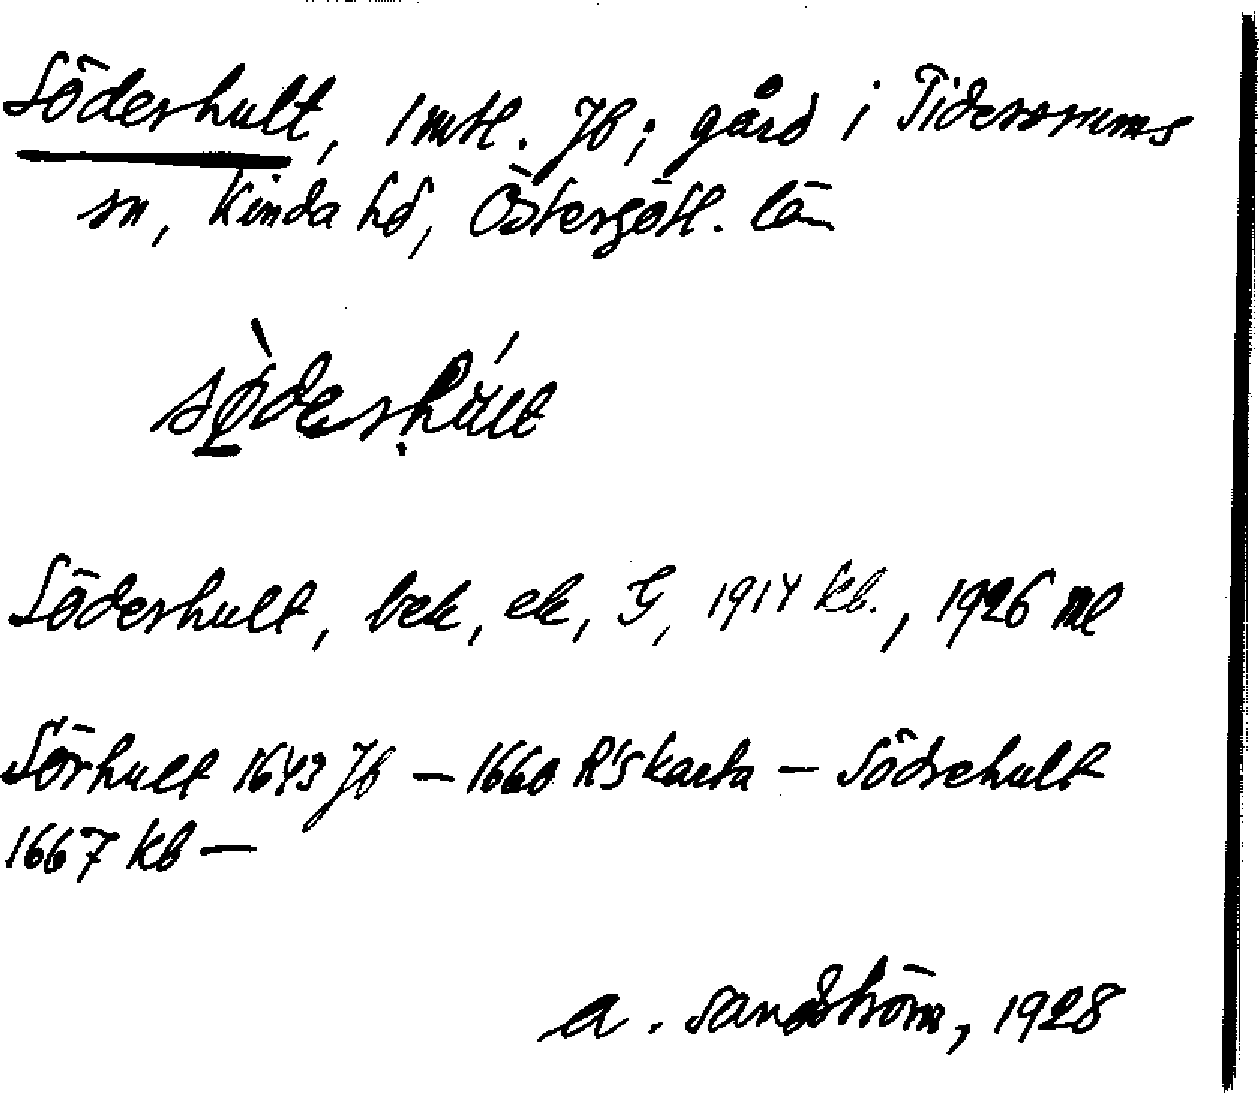 Söderhult, 1 mtl. Jb; gård i Tidersrums
sn, Kinda hd, Östergötl. län
sø̀derhúlt
Söderhult, bek, ek, G, 1914 kb., 1926 ml
Sörhult 1643 Jb – 1660 RS karta – Södrehult
1667 kb –
A. Sandström, 1928